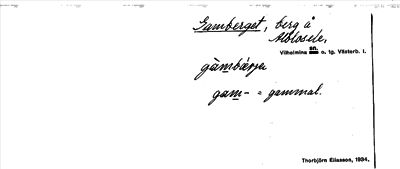 Gamberget, berg å
Målosele,
Vilhelmina sn. o. tg. Västerb. l.
gàmbärje
gam- = gammal.
Thorbjörn Eliasson, 1934.